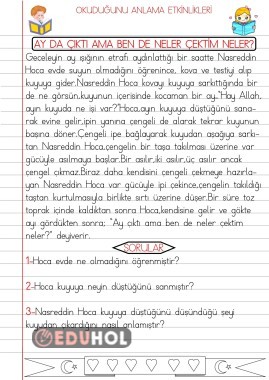 OKUDUĞUNU ANLAMA ETKİNLİKLERİ
AY DA ÇIKTI AMA BEN DE NELER ÇEKTİM NELER?
Geceleyin ay ışığının etrafı aydınlattığı bir saatte Nasreddin
Hoca evde suyun olmadığını öğrenince, kova ve testiyi alıp
kuyuya gider.Nasreddin Hoca kovayı kuyuya sarkıttığında bir
de ne görsün,kuyunun içerisinde kocaman bir ay."Hay Allah,
ayın kuyuda ne işi var?"Hoca,ayın kuyuya düştüğünü sana-
rak evine gelir,ipin yanına çengeli de alarak tekrar kuyunun
başına döner.Çengeli ipe bağlayarak kuyudan aşağıya sarkı-
tan Nasreddin Hoca,çengelin bir taşa takılması üzerine var
gücüyle asılmaya başlar.Bir asılır,iki asılır,üç asılır ancak
çengel çıkmaz.Biraz daha kendisini çengeli çekmeye hazırla-
yan Nasreddin Hoca var gücüyle ipi çekince,çengelin takıldığı
taştan kurtulmasıyla birlikte sırtı üzerine düşer.Bir süre toz
toprak içinde kaldıktan sonra Hoca,kendisine gelir ve gökte
ayı gördükten sonra; "Ay çıktı ama ben de neler çektim
neler?" deyiverir.
SORULAR
1-Hoca evde ne olmadığını öğrenmiştir?
2-Hoca kuyuya neyin düştüğünü sanmıştır?
3-Nasreddin Hoca kuyuya düştüğünü düşündüğü şeyi
kuyudan çıkardığını nasıl anlamıştır?
EDUHOL